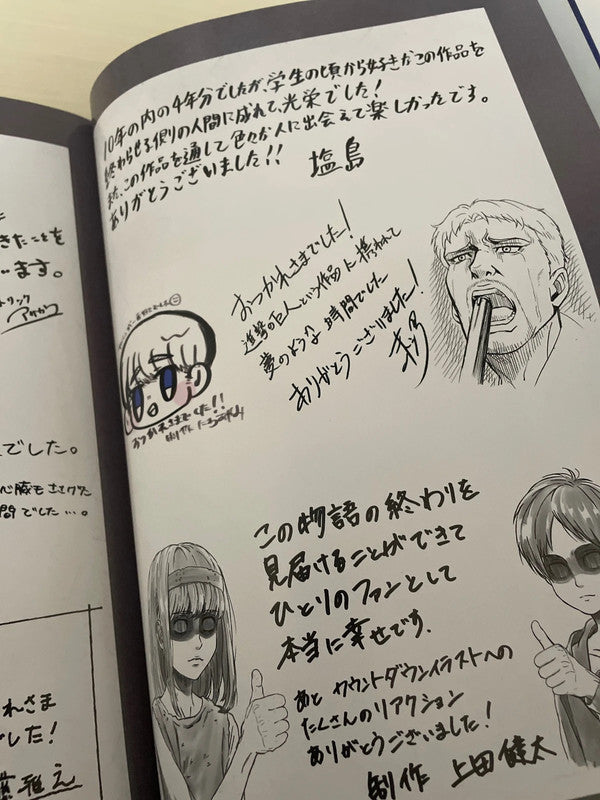 10年の内の4年分でしたが、学生の頃から好きなこの作品を
終わらせる側の人間に成れて、光栄でした!
また、この作品を通して色々な人に出会えて楽しかったです。
ありがとうございました!!
塩島
おつかれさまでした!
進撃の巨人という作品に携われて
夢のような時間でした
ありがとうございました!
おつかれさまでした!!
この物語の終わりを
見届けることができて
ひとりのファンとして
本当に幸せです.
あと カウントダウンイラストへの
たくさんのリアクション
ありがとうございました!
制作 上田健太
きたことを
います。
でした。
間でした…。
れさま
でした!